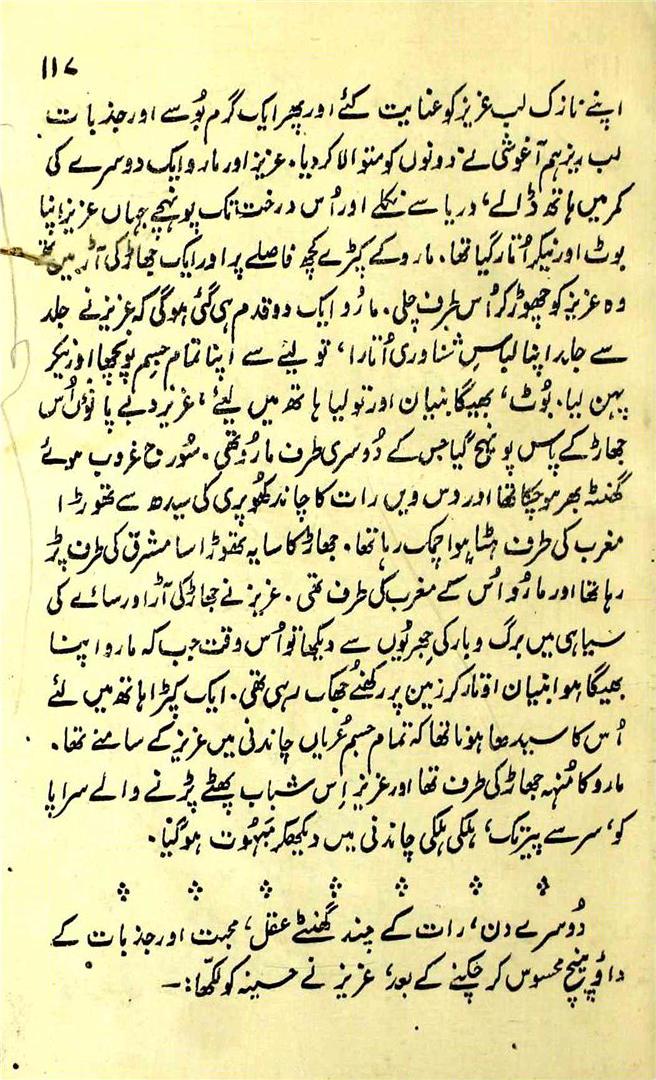 ۱۱۷
اپنے نازک لب عزیز کو عنایت کئے اور پھر ایک گرم بُوسے اور جذبات
لب ریز ہم آغوشی نے دونوں کو متوالا کر دیا۔ عزیز اور مارو ایک دوسرے کی
کمر میں ہاتھ ڈالے، دریا سے نکلے اور اُس درخت تک پونہچے جہاں عزیز اپنا
بوٹ اور نیکر اُتار گیا تھا۔ مارو کے کپڑے کچھ فاصلے پر اور ایک جھاڑ کی آڑ میں تھے
وہ عزیز کو چھوڑ کر اُس طرف چلی۔ مارُو ایک دو قدم ہی گئی ہوگی کہ عزیز نے جلد
سے جلد اپنا لباسِ شناوری اُتارا، تولیے سے اپنا تمام جسم پونچھا اور نیکر
پہن لیا۔ بُوٹ، بھیگا بنیان اور تولیا ہاتھ میں لیئے، عزیز دبے پانوؤں اُس
جھاڑ کے پاس پونہچ گیا جس کے دُوسری طرف مارُو تھی۔ سُورج غروب ہوئے
گھنٹہ بھر ہو چکا تھا اور دس ویں رات کا چاند کھُوپری کی سیدھ سے تھوڑا
مغرب کی طرف ہٹا ہوا چمک رہا تھا۔ جھاڑ کا سایہ تھوڑا سا مشرق کی طرف پڑ
رہا تھا اور مارُو اُس کے مغرب کی طرف تھی۔ عزیز نے جھاڑ کی آڑ اور سائے کی
سیاہی میں برگ و بار کی جھریُوں سے دیکھا تو اُس وقت جب کہ مارو اپنا
بھیگا ہوا بنیان اوتار کر زمین پر رکھنے جُھک رہی تھی۔ ایک کپڑا ہاتھ میں لئے
اُس کا سیدھا ہونا تھا کہ تمام جسم عُریاں چاندنی میں عزیز کے سامنے تھا۔
مارو کا مُنہہ جھاڑ کی طرف تھا اور عزیز اِس شباب پھٹے پڑنے والے سراپا
کو، سر سے پیر تک، ہلکی ہلکی چاندنی میں دیکھکر مَبہُوت ہو گیا۔
دُوسرے دن، رات کے چند گھنٹے عقل، محبت اور جذبات کے
داؤ پینچ محسوس کر چکنے کے بعد، عزیز نے حسینہ کو لکھا:۔